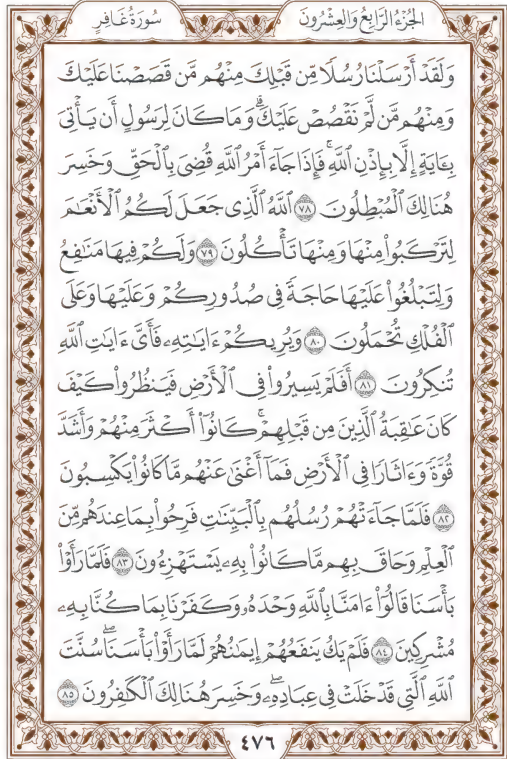 الجُزْءُ الرَّابِعُ وَالعِشْرُونَ
سُورَةُ غَافِرٍ
وَلَقَدْ أَرْسَلْنَا رُسُلًا مِّن قَبْلِكَ مِنْهُم مَّن قَصَصْنَا عَلَيْكَ
وَمِنْهُم مَّن لَّمْ نَقْصُصْ عَلَيْكَ ۗ وَمَا كَانَ لِرَسُولٍ أَن يَأْتِىَ
بِـَٔايَةٍ إِلَّا بِإِذْنِ ٱللَّهِ ۚ فَإِذَا جَآءَ أَمْرُ ٱللَّهِ قُضِىَ بِٱلْحَقِّ وَخَسِرَ
هُنَالِكَ ٱلْمُبْطِلُونَ ٧٨ ٱللَّهُ ٱلَّذِى جَعَلَ لَكُمُ ٱلْأَنْعَٰمَ
لِتَرْكَبُوا۟ مِنْهَا وَمِنْهَا تَأْكُلُونَ ٧٩ وَلَكُمْ فِيهَا مَنَٰفِعُ
وَلِتَبْلُغُوا۟ عَلَيْهَا حَاجَةً فِى صُدُورِكُمْ وَعَلَيْهَا وَعَلَى
ٱلْفُلْكِ تُحْمَلُونَ ٨٠ وَيُرِيكُمْ ءَايَٰتِهِۦ فَأَىَّ ءَايَٰتِ ٱللَّهِ
تُنكِرُونَ ٨١ أَفَلَمْ يَسِيرُوا۟ فِى ٱلْأَرْضِ فَيَنظُرُوا۟ كَيْفَ
كَانَ عَٰقِبَةُ ٱلَّذِينَ مِن قَبْلِهِمْ ۚ كَانُوٓا۟ أَكْثَرَ مِنْهُمْ وَأَشَدَّ
قُوَّةً وَءَاثَارًا فِى ٱلْأَرْضِ فَمَآ أَغْنَىٰ عَنْهُم مَّا كَانُوا۟ يَكْسِبُونَ
٨٢ فَلَمَّا جَآءَتْهُمْ رُسُلُهُم بِٱلْبَيِّنَٰتِ فَرِحُوا۟ بِمَا عِندَهُم مِّنَ
ٱلْعِلْمِ وَحَاقَ بِهِم مَّا كَانُوا۟ بِهِۦ يَسْتَهْزِءُونَ ٨٣ فَلَمَّا رَأَوْا۟
بَأْسَنَا قَالُوٓا۟ ءَامَنَّا بِٱللَّهِ وَحْدَهُۥ وَكَفَرْنَا بِمَا كُنَّا بِهِۦ
مُشْرِكِينَ ٨٤ فَلَمْ يَكُ يَنفَعُهُمْ إِيمَٰنُهُمْ لَمَّا رَأَوْا۟ بَأْسَنَا ۖ سُنَّتَ
ٱللَّهِ ٱلَّتِى قَدْ خَلَتْ فِى عِبَادِهِۦ ۖ وَخَسِرَ هُنَالِكَ ٱلْكَٰفِرُونَ ٨٥
٤٧٦